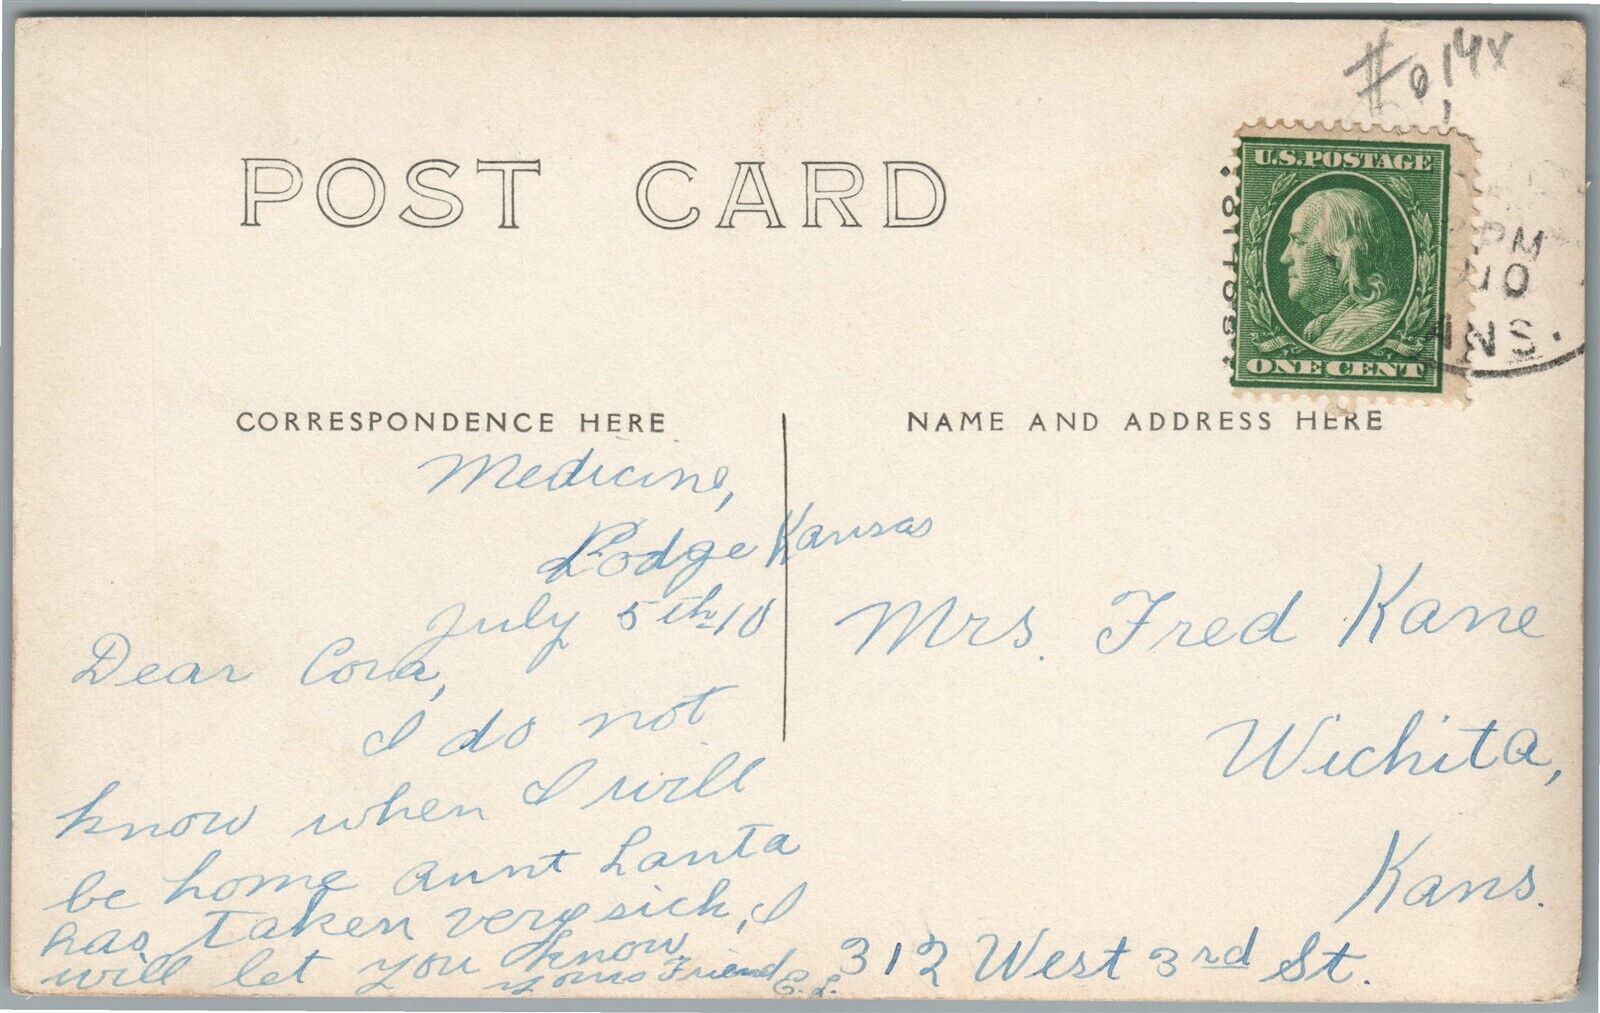 POST CARD
U.S. POSTAGE
ONE CENT
PM
10
ANS.
CORRESPONDENCE HERE
NAME AND ADDRESS HERE
Medicine,
Lodge Kansas
July 5th-10
Dear Cora,
I do not
know when I will
be home aunt Lanta
has taken very sick, I
will let you know
yours Friend
Mrs. Fred Kane
Wichita,
Kans.
312 West 3rd St.